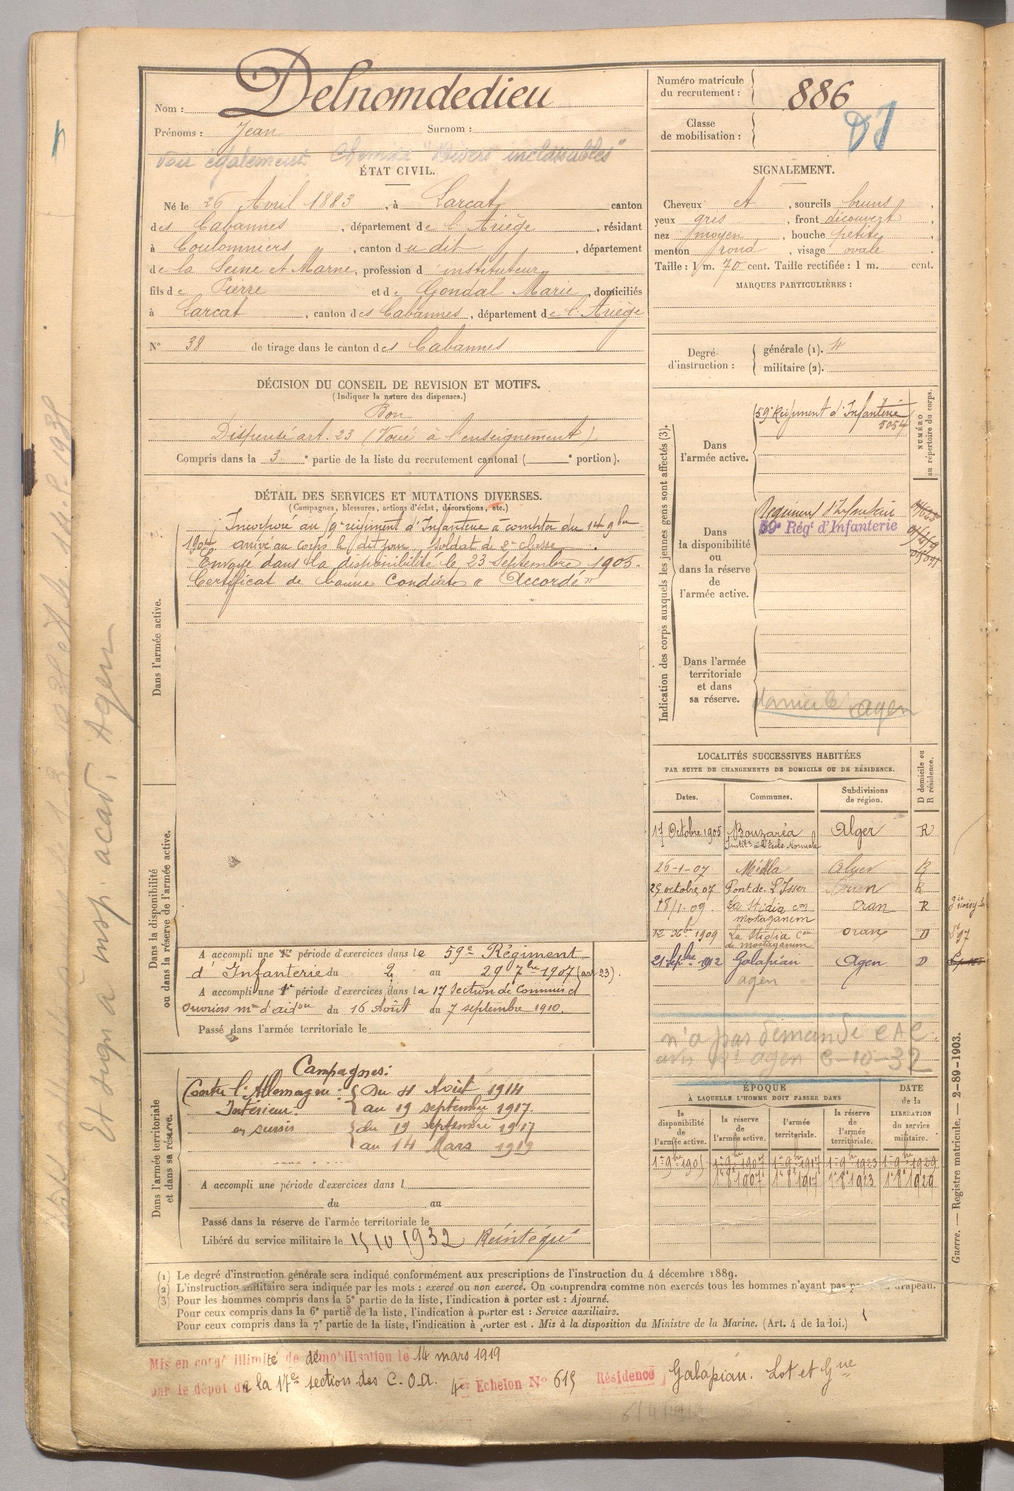 Nom : Delnomdedieu
Prénoms : Jean Surnom :
Voir également Chemise "Divers inclassables"
ÉTAT CIVIL.
Né le 26 Avril 1883, à Larcat, canton
des Cabannes, département de l'Ariège, résidant
à Coulommiers, canton du dit, département
de la Seine et Marne, profession d'instituteur
fils de Pierre et de Gondal Marie, domiciliés
à Larcat, canton des Cabannes, département de l'Ariège
N° 38 de tirage dans le canton des Cabannes
DÉCISION DU CONSEIL DE REVISION ET MOTIFS.
(Indiquer la nature des dispenses.)
Bon
Dispensé art. 23 (Voué à l'enseignement)
Compris dans la 3e partie de la liste du recrutement cantonal ( e portion).
DÉTAIL DES SERVICES ET MUTATIONS DIVERSES.
(Campagnes, blessures, actions d'éclat, décorations, etc.)
Dans l'armée active.
Incorporé au 9e régiment d'Infanterie à compter du 14 9bre
1904 arrivé au corps le dit jour, soldat de 2e classe
Envoyé dans la disponibilité le 23 Septembre 1905.
Certificat de bonne Conduite « Accordé »
Dans la disponibilité
ou dans la réserve de l'armée active.
A accompli une 1re période d'exercices dans le 59e Régiment
d'Infanterie du 2 au 29 7bre 1907 (art 23).
A accompli une 2e période d'exercices dans la 17 Section de Commis et
ouvriers mres d'adon du 16 Août au 7 septembre 1910.
Passé dans l'armée territoriale le
Dans l'armée territoriale
et dans sa réserve.
Campagnes :
Contre l'Allemagne Du 4 Août 1914
Intérieur. au 19 septembre 1917.
en sursis du 19 septembre 1917
au 14 Mars 1919
A accompli une période d'exercices dans l
du au
Passé dans la réserve de l'armée territoriale le
Libéré du service militaire le 15 10 1932 Réintégré
Numéro matricule
du recrutement : 886
Classe
de mobilisation :
SIGNALEMENT.
Cheveux et, sourcils bruns,
yeux gris, front découvert,
nez moyen, bouche petite,
menton rond, visage ovale
Taille : 1 m. 70 cent. Taille rectifiée : 1 m. cent.
MARQUES PARTICULIÈRES :
Degré
d'instruction :
générale (1). 4
militaire (2).
Indication des corps auxquels les jeunes gens sont affectés (3).
NUMÉRO
au répertoire du corps.
Dans
l'armée active.
59e Régiment d'Infanterie
5054
Dans
la disponibilité
ou
dans la réserve
de
l'armée active.
Régiment d'Infanterie
59e Régt d'Infanterie
Dans l'armée
territoriale
et dans
sa réserve.
Agen
LOCALITÉS SUCCESSIVES HABITÉES
PAR SUITE DE CHANGEMENTS DE DOMICILE OU DE RÉSIDENCE.
Dates. Communes. Subdivisions de région. D domicile ou R résidence.
17 Octobre 1905 Bouzaréa Alger R
Institr à l'École Normale
26-1-07 Alger R
29 octobre 07 Pont de L'Isser R
18/1-09. La Stidia con Oran R
mostaganem
12 Xbre 1909 La Stidia Cne Oran D
de mostaganem
21 Septbre 1912 Galapian Agen D
agen
n'a pas demandé CAC.
avis agen 6-10-32
ÉPOQUE
À LAQUELLE L'HOMME DOIT PASSER DANS
DATE
de la
LIBÉRATION
du service
militaire.
la disponibilité de l'armée active. la réserve de l'armée active. l'armée territoriale. la réserve de l'armée territoriale.
1er 9bre 1905 1er 9bre 1907 1er 9bre 1917 1er 9bre 1923 1er 9bre 1929
1er 8bre 1907 1er 8bre 1917 1er 8bre 1923 1er 8bre 1929
(1) Le degré d'instruction générale sera indiqué conformément aux prescriptions de l'instruction du 4 décembre 1889.
(2) L'instruction militaire sera indiquée par les mots : exercé ou non exercé. On comprendra comme non exercés tous les hommes n'ayant pas drapeau.
(3) Pour les hommes compris dans la 5e partie de la liste, l'indication à porter est : Ajourné.
Pour ceux compris dans la 6e partie de la liste, l'indication à porter est : Service auxiliaire.
Pour ceux compris dans la 7e partie de la liste, l'indication à porter est : Mis à la disposition du Ministre de la Marine. (Art. 4 de la loi.)
Guerre. — Registre matricule. — 2-89-1903.
Mis en congé illimité de démobilisation le 14 mars 1919
par le dépôt de la 17e section des C.O.A. 4e Echelon N° 615 Résidence Galapian. Lot et Gne
Et sign à insp. acad. Agen